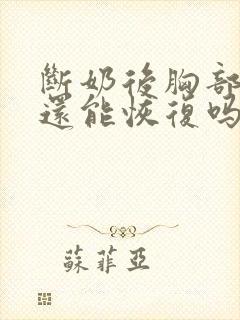 斷奶後胸部
還能恢復嗎
蘇菲亞